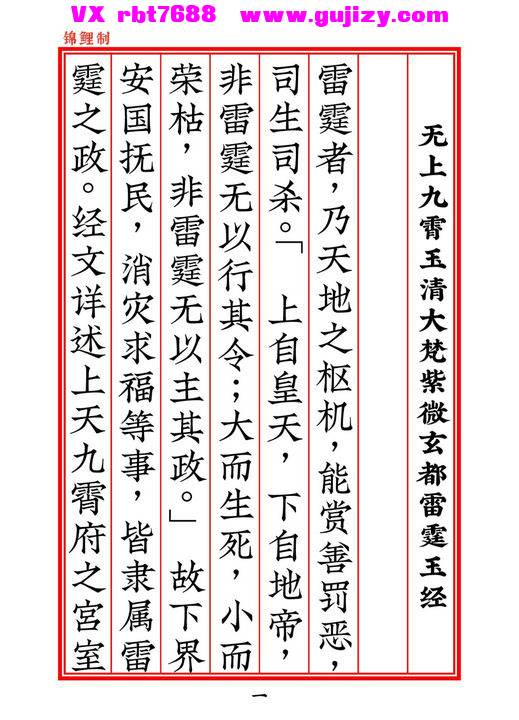 VX rbt7688 www.gujizy.com
锦鲤制
无上九霄玉清大梵紫微玄都雷霆玉经
雷霆者，乃天地之枢机，能赏善罚恶，
司生司杀。「上自皇天，下自地帝，
非雷霆无以行其令；大而生死，小而
荣枯，非雷霆无以主其政。」故下界
安国抚民，消灾求福等事，皆隶属雷
霆之政。经文详述上天九霄府之宫室
一